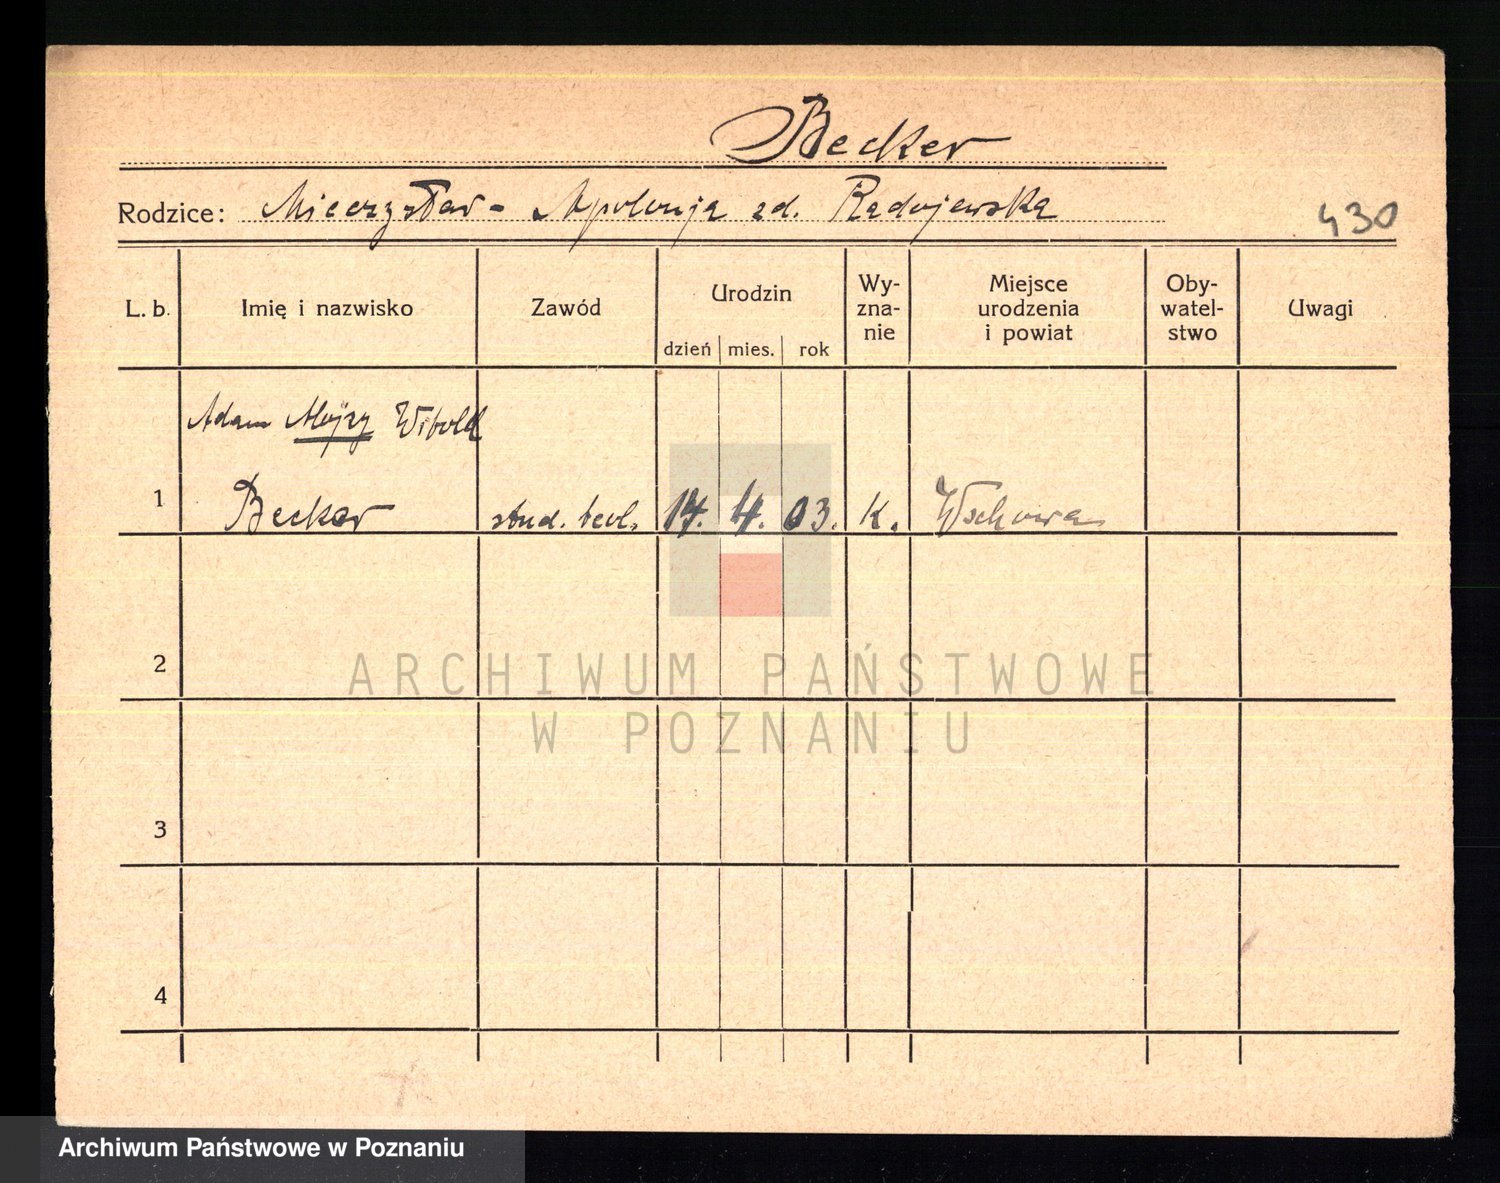 Becker
Rodzice: Mieczysław - Apolonja zd. Radojewska
430
L. b. Imię i nazwisko Zawód Urodzin dzień mies. rok Wy-zna-nie Miejsce urodzenia i powiat Oby-watel-stwo Uwagi
Adam Alojzy Witold
1 Becker stud. teol. 14. 4. 03. K. Wschowa
2
ARCHIWUM PAŃSTWOWE
W POZNANIU
3
4
Archiwum Państwowe w Poznaniu